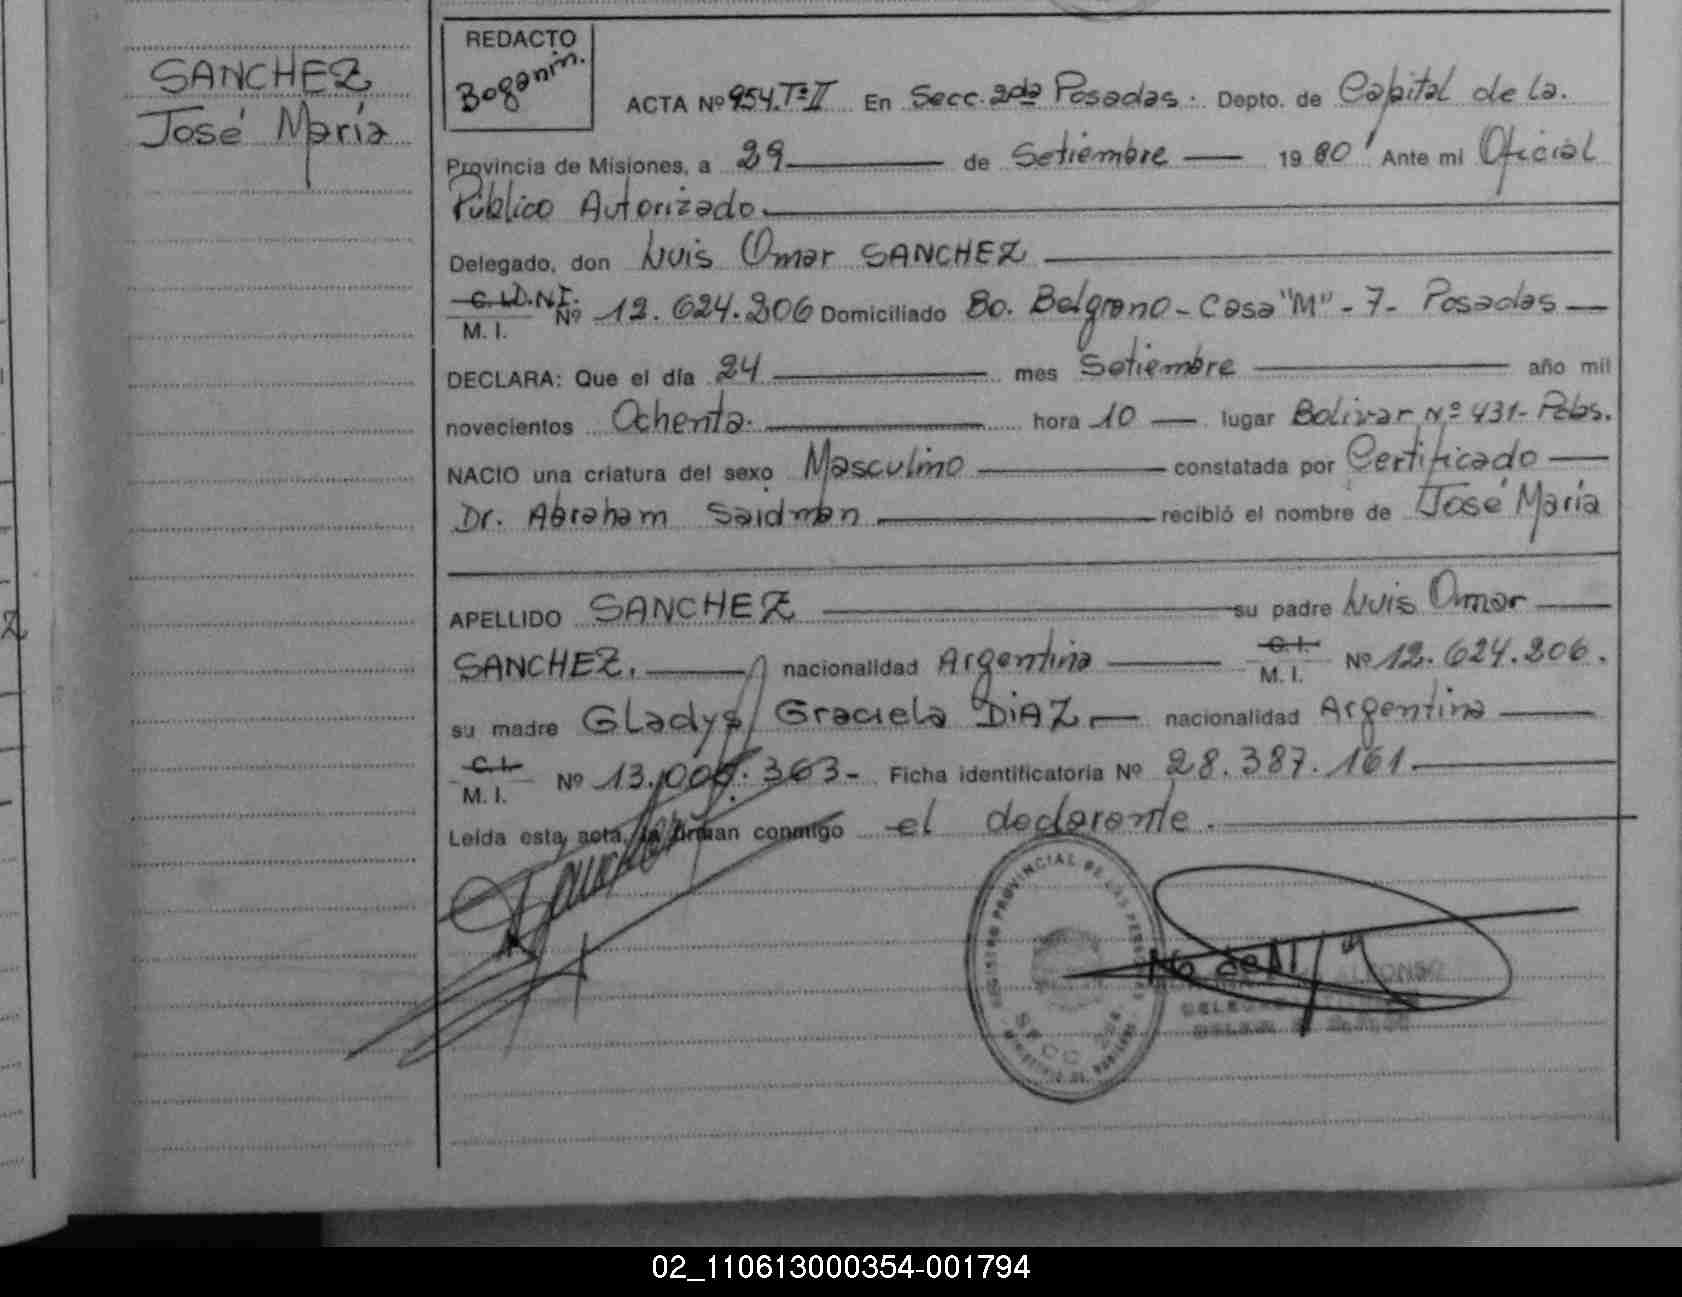 SANCHEZ
José María
REDACTO
Boganin.
ACTA Nº 954.Tº II En Secc. 2da Posadas. Depto. de Capital de la.
Provincia de Misiones, a 29 de Setiembre 19 80 Ante mi Oficial
Público Autorizado.
Delegado, don Luis Omar SANCHEZ
C.I. D.N.I.
M. I. Nº 12.624.206 Domiciliado Bo. Belgrano - Casa "M" - 7 - Posadas
DECLARA: Que el día 24 mes Setiembre año mil
novecientos Ochenta. hora 10 lugar Bolivar Nº 431-Pdas.
NACIO una criatura del sexo Masculino constatada por Certificado
Dr. Abraham Saidman recibió el nombre de José María
APELLIDO SANCHEZ su padre Luis Omar
SANCHEZ. nacionalidad Argentina C.I. M. I. Nº 12.624.206.
su madre Gladys Graciela DIAZ nacionalidad Argentina
C.I. M. I. Nº 13.005.363- Ficha identificatoria Nº 28.387.161.
Leida esta acta, la firman conmigo el declarante.
REGISTRO PROVINCIAL DE LAS PERSONAS
SECC 2da
02_110613000354-001794